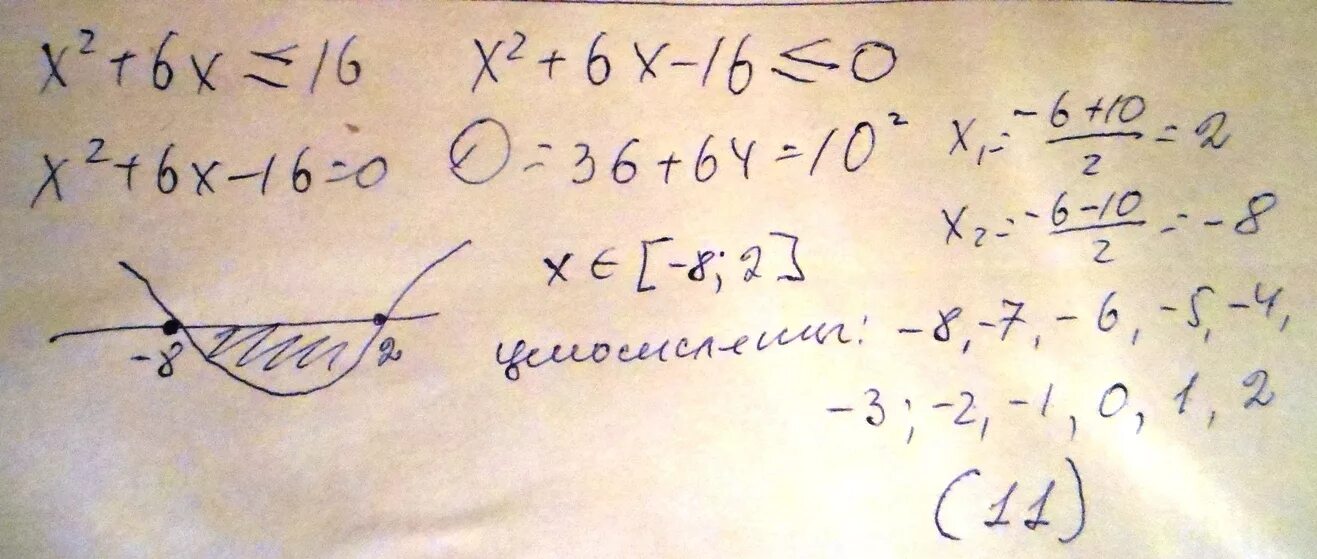 x² + 6x ≤ 16
x² + 6x - 16 ≤ 0
x² + 6x - 16 = 0
D = 36 + 64 = 10²
x₁ = (-6 + 10)/2 = 2
x₂ = (-6 - 10)/2 = -8
-8 2
x ∈ [-8; 2]
целочисленных: -8, -7, -6, -5, -4,
-3; -2, -1, 0, 1, 2
(11)